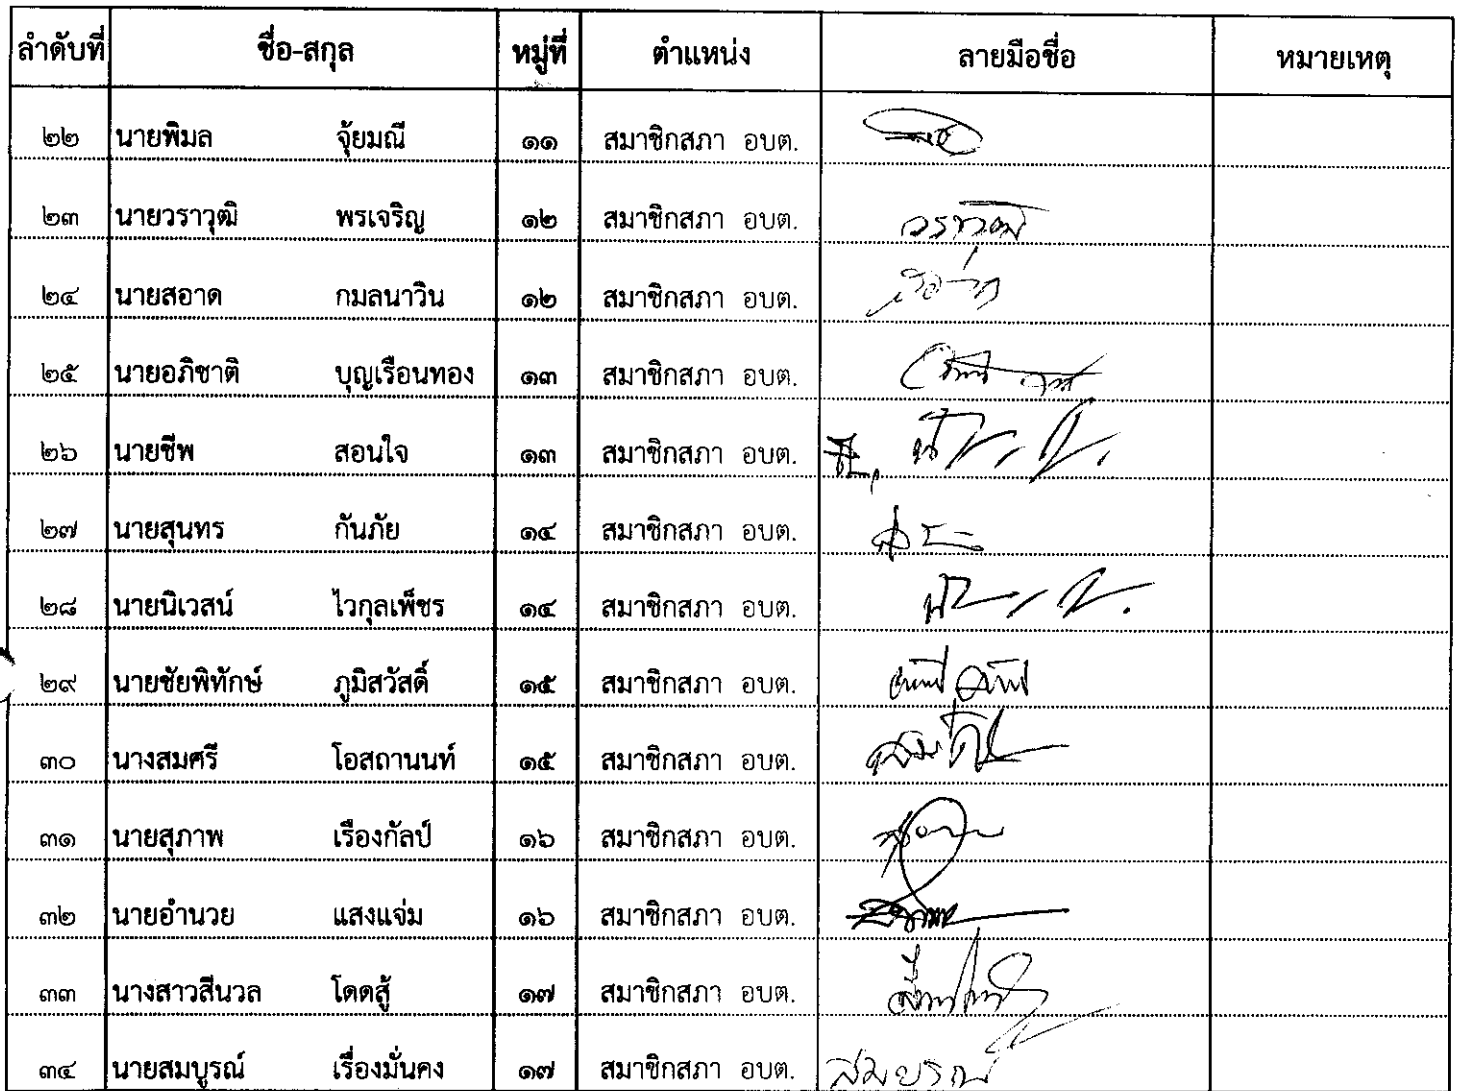 ลำดับที่ ชื่อ-สกุล หมู่ที่ ตำแหน่ง ลายมือชื่อ หมายเหตุ
๒๒ นายพิมล จุ้ยมณี ๑๑ สมาชิกสภา อบต.
๒๓ นายวราวุฒิ พรเจริญ ๑๒ สมาชิกสภา อบต. วราวุฒิ
๒๔ นายสอาด กมลนาวิน ๑๒ สมาชิกสภา อบต.
๒๕ นายอภิชาติ บุญเรือนทอง ๑๓ สมาชิกสภา อบต.
๒๖ นายชีพ สอนใจ ๑๓ สมาชิกสภา อบต.
๒๗ นายสุนทร กันภัย ๑๔ สมาชิกสภา อบต.
๒๘ นายนิเวสน์ ไวกูลเพ็ชร ๑๔ สมาชิกสภา อบต.
๒๙ นายชัยพิทักษ์ ภูมิสวัสดิ์ ๑๕ สมาชิกสภา อบต.
๓๐ นางสมศรี โอสถานนท์ ๑๕ สมาชิกสภา อบต.
๓๑ นายสุภาพ เรืองกัลป์ ๑๖ สมาชิกสภา อบต.
๓๒ นายอำนวย แสงแจ่ม ๑๖ สมาชิกสภา อบต.
๓๓ นางสาวสีนวล โดดสู้ ๑๗ สมาชิกสภา อบต.
๓๔ นายสมบูรณ์ เรื่องมั่นคง ๑๗ สมาชิกสภา อบต. สมบูรณ์